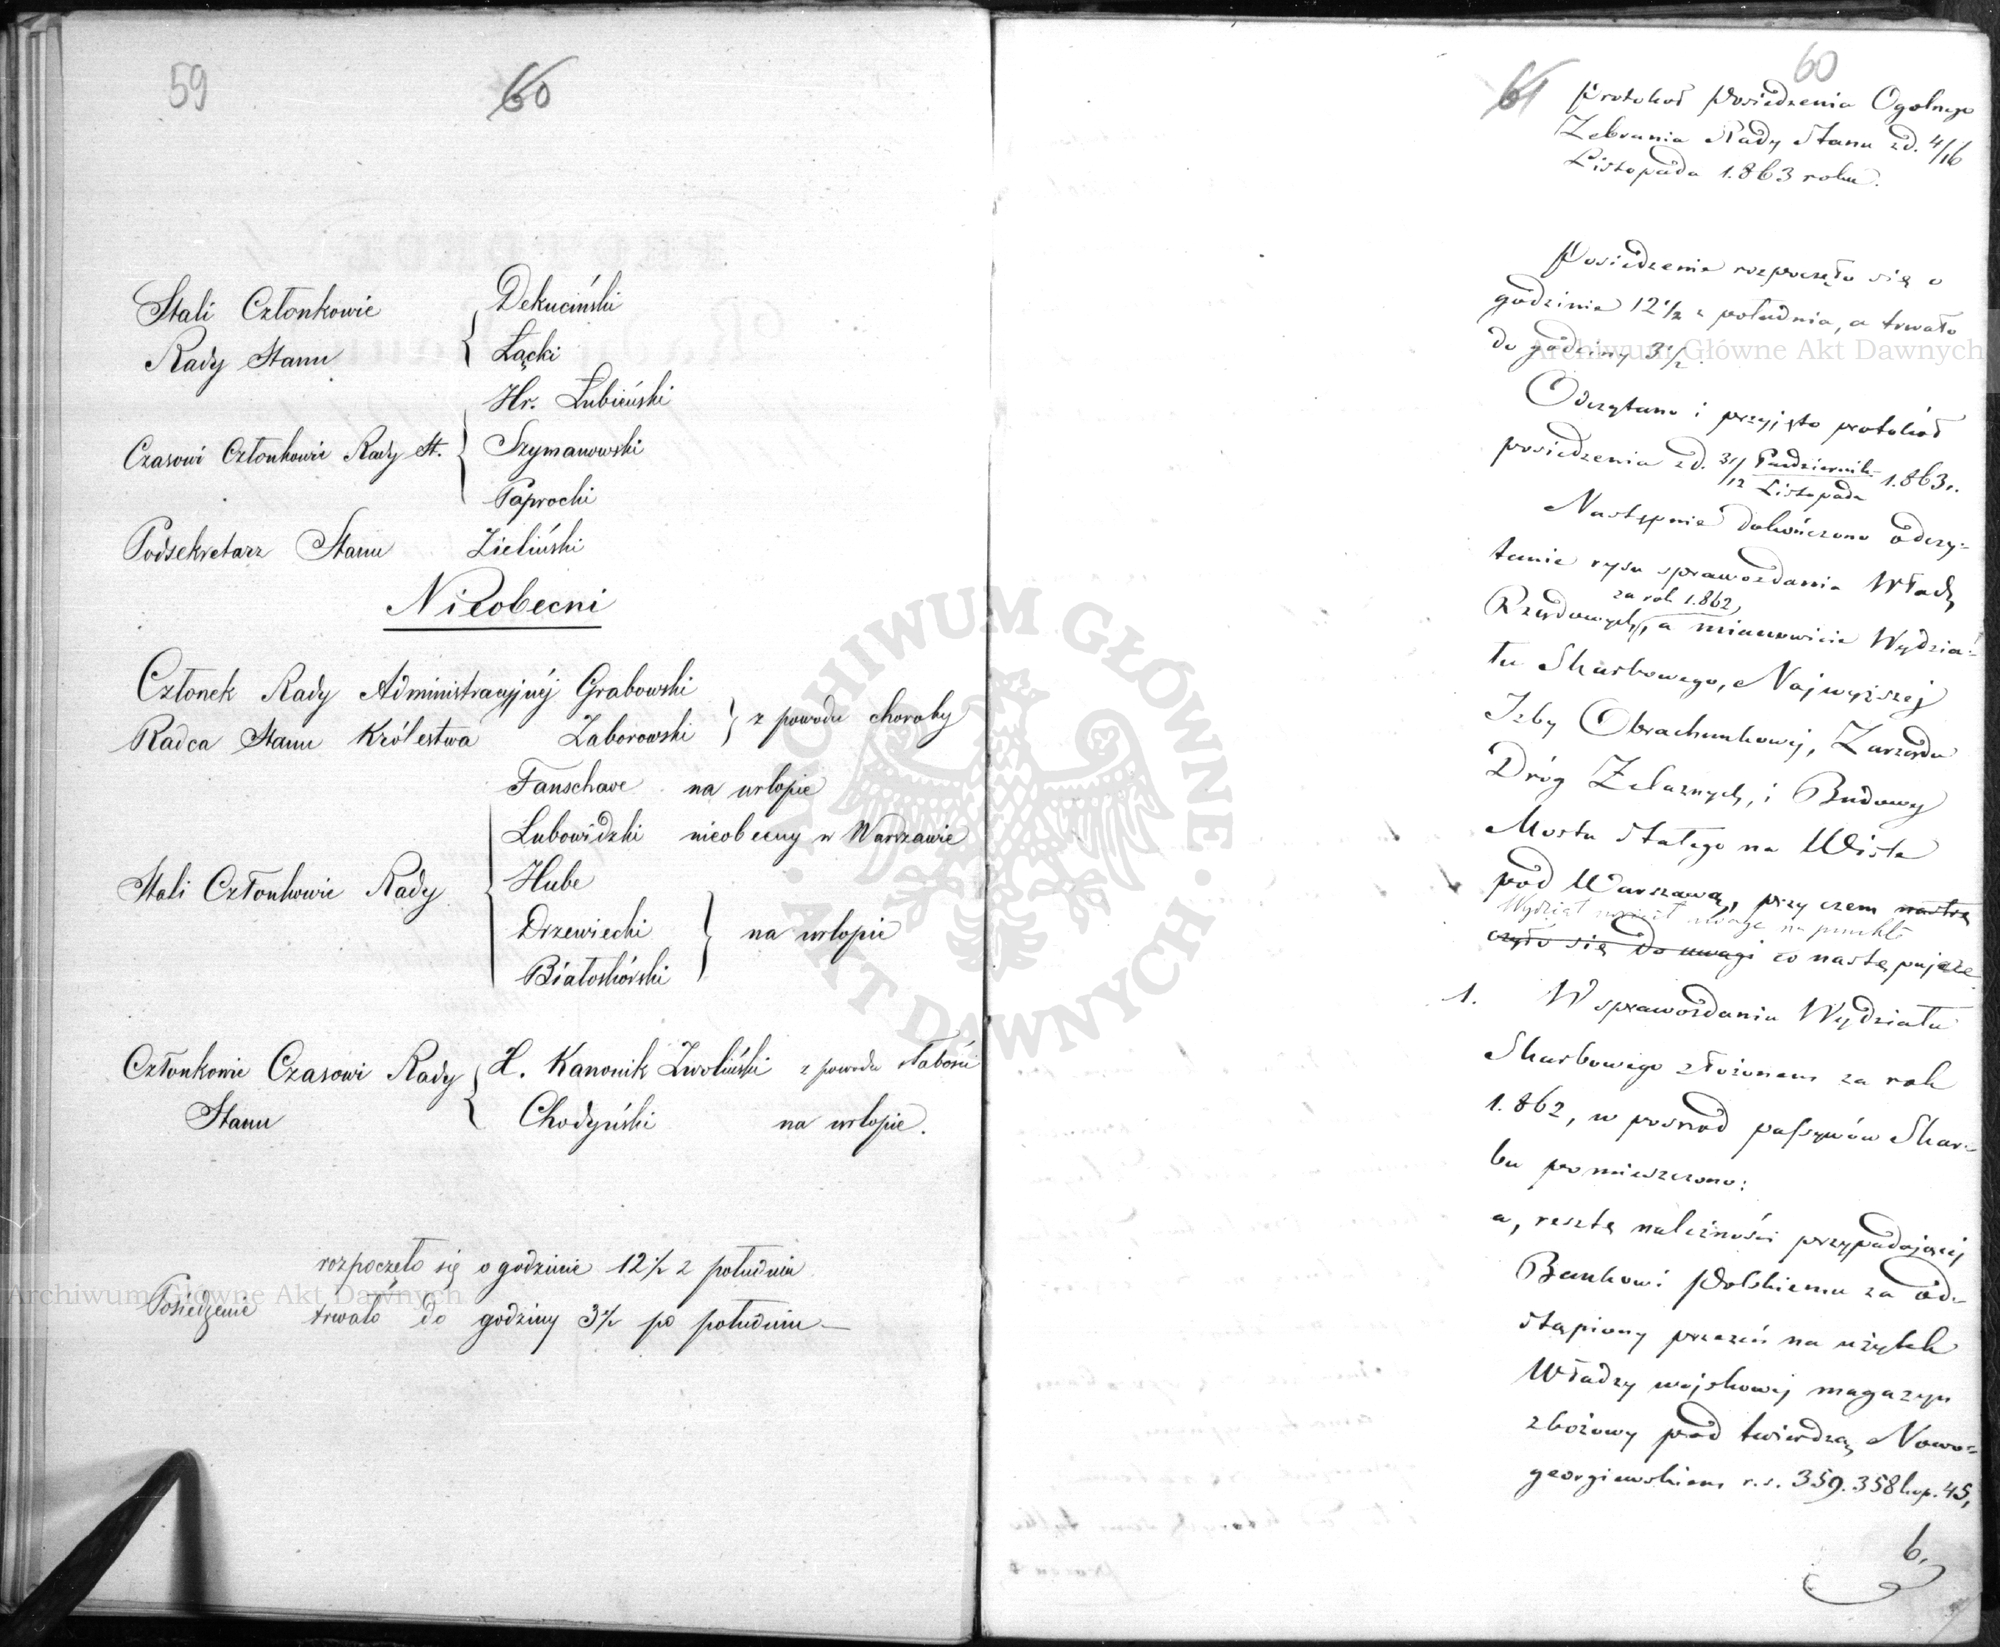 59
60
Stali Członkowie
Rady Stanu
Dekuciński
Łącki
Hr. Łubieński
Czasowi Członkowie Rady St.
Szymanowski
Paprocki
Podsekretarz Stanu Zieliński
Nieobecni
Członek Rady Administracyjnéj Grabowski
Radca Stanu Królestwa Zaborowski
z powodu choroby
Fanschave na urlopie
Łubowidzki nieobecny w Warszawie
Stali Członkowie Rady
Hube
Drzewiecki
Białoskórski
na urlopie
Członkowie Czasowi Rady
Stanu
X. Kanonik Zwoliński z powodu słabości
Chodyński na urlopie.
Posiedzenie
rozpoczęło się o godzinie 12½ z południa
trwało do godziny 3½ po południu
60
61
Protokoł Posiedzenia Ogolnego
Zebrania Rady Stanu zd. 4/16
Listopada 1.863 roku.
Posiedzenie rozpoczęło się o
godzinie 12½ z południa, a trwało
do godziny 3½.
Odczytano i przyjęto protokół
posiedzenia zd. 31/12 Października/Listopada 1.863 r.
Następnie dokończono odczy-
tanie rysu sprawozdania Władz
za rok 1.862,
Rządowych, a mianowicie Wydzia-
łu Skarbowego, Najwyższej
Izby Obrachunkowej, Zarządu
Dróg Żelaznych, i Budowy
Mostu stałego na Wiśle
pod Warszawą, przy czem nastrę
Wydział uwagę na punkt
czyło się do uwagi co następuje
1. W sprawozdaniu Wydziału
Skarbowego złożonem za rok
1.862, w pośród passywów Skar-
bu pomieszczono:
a, resztę należności przypadającej
Bankowi Polskiemu za od-
stąpiony przezeń na użytek
Władzy wojskowej magazyn
zbożowy pod twierdzą Nowo-
georgiewskiem r.s. 359.358 kop. 45,
b,
Archiwum Główne Akt Dawnych
Archiwum Główne Akt Dawnych
ARCHIWUM GŁÓWNE
AKT DAWNYCH